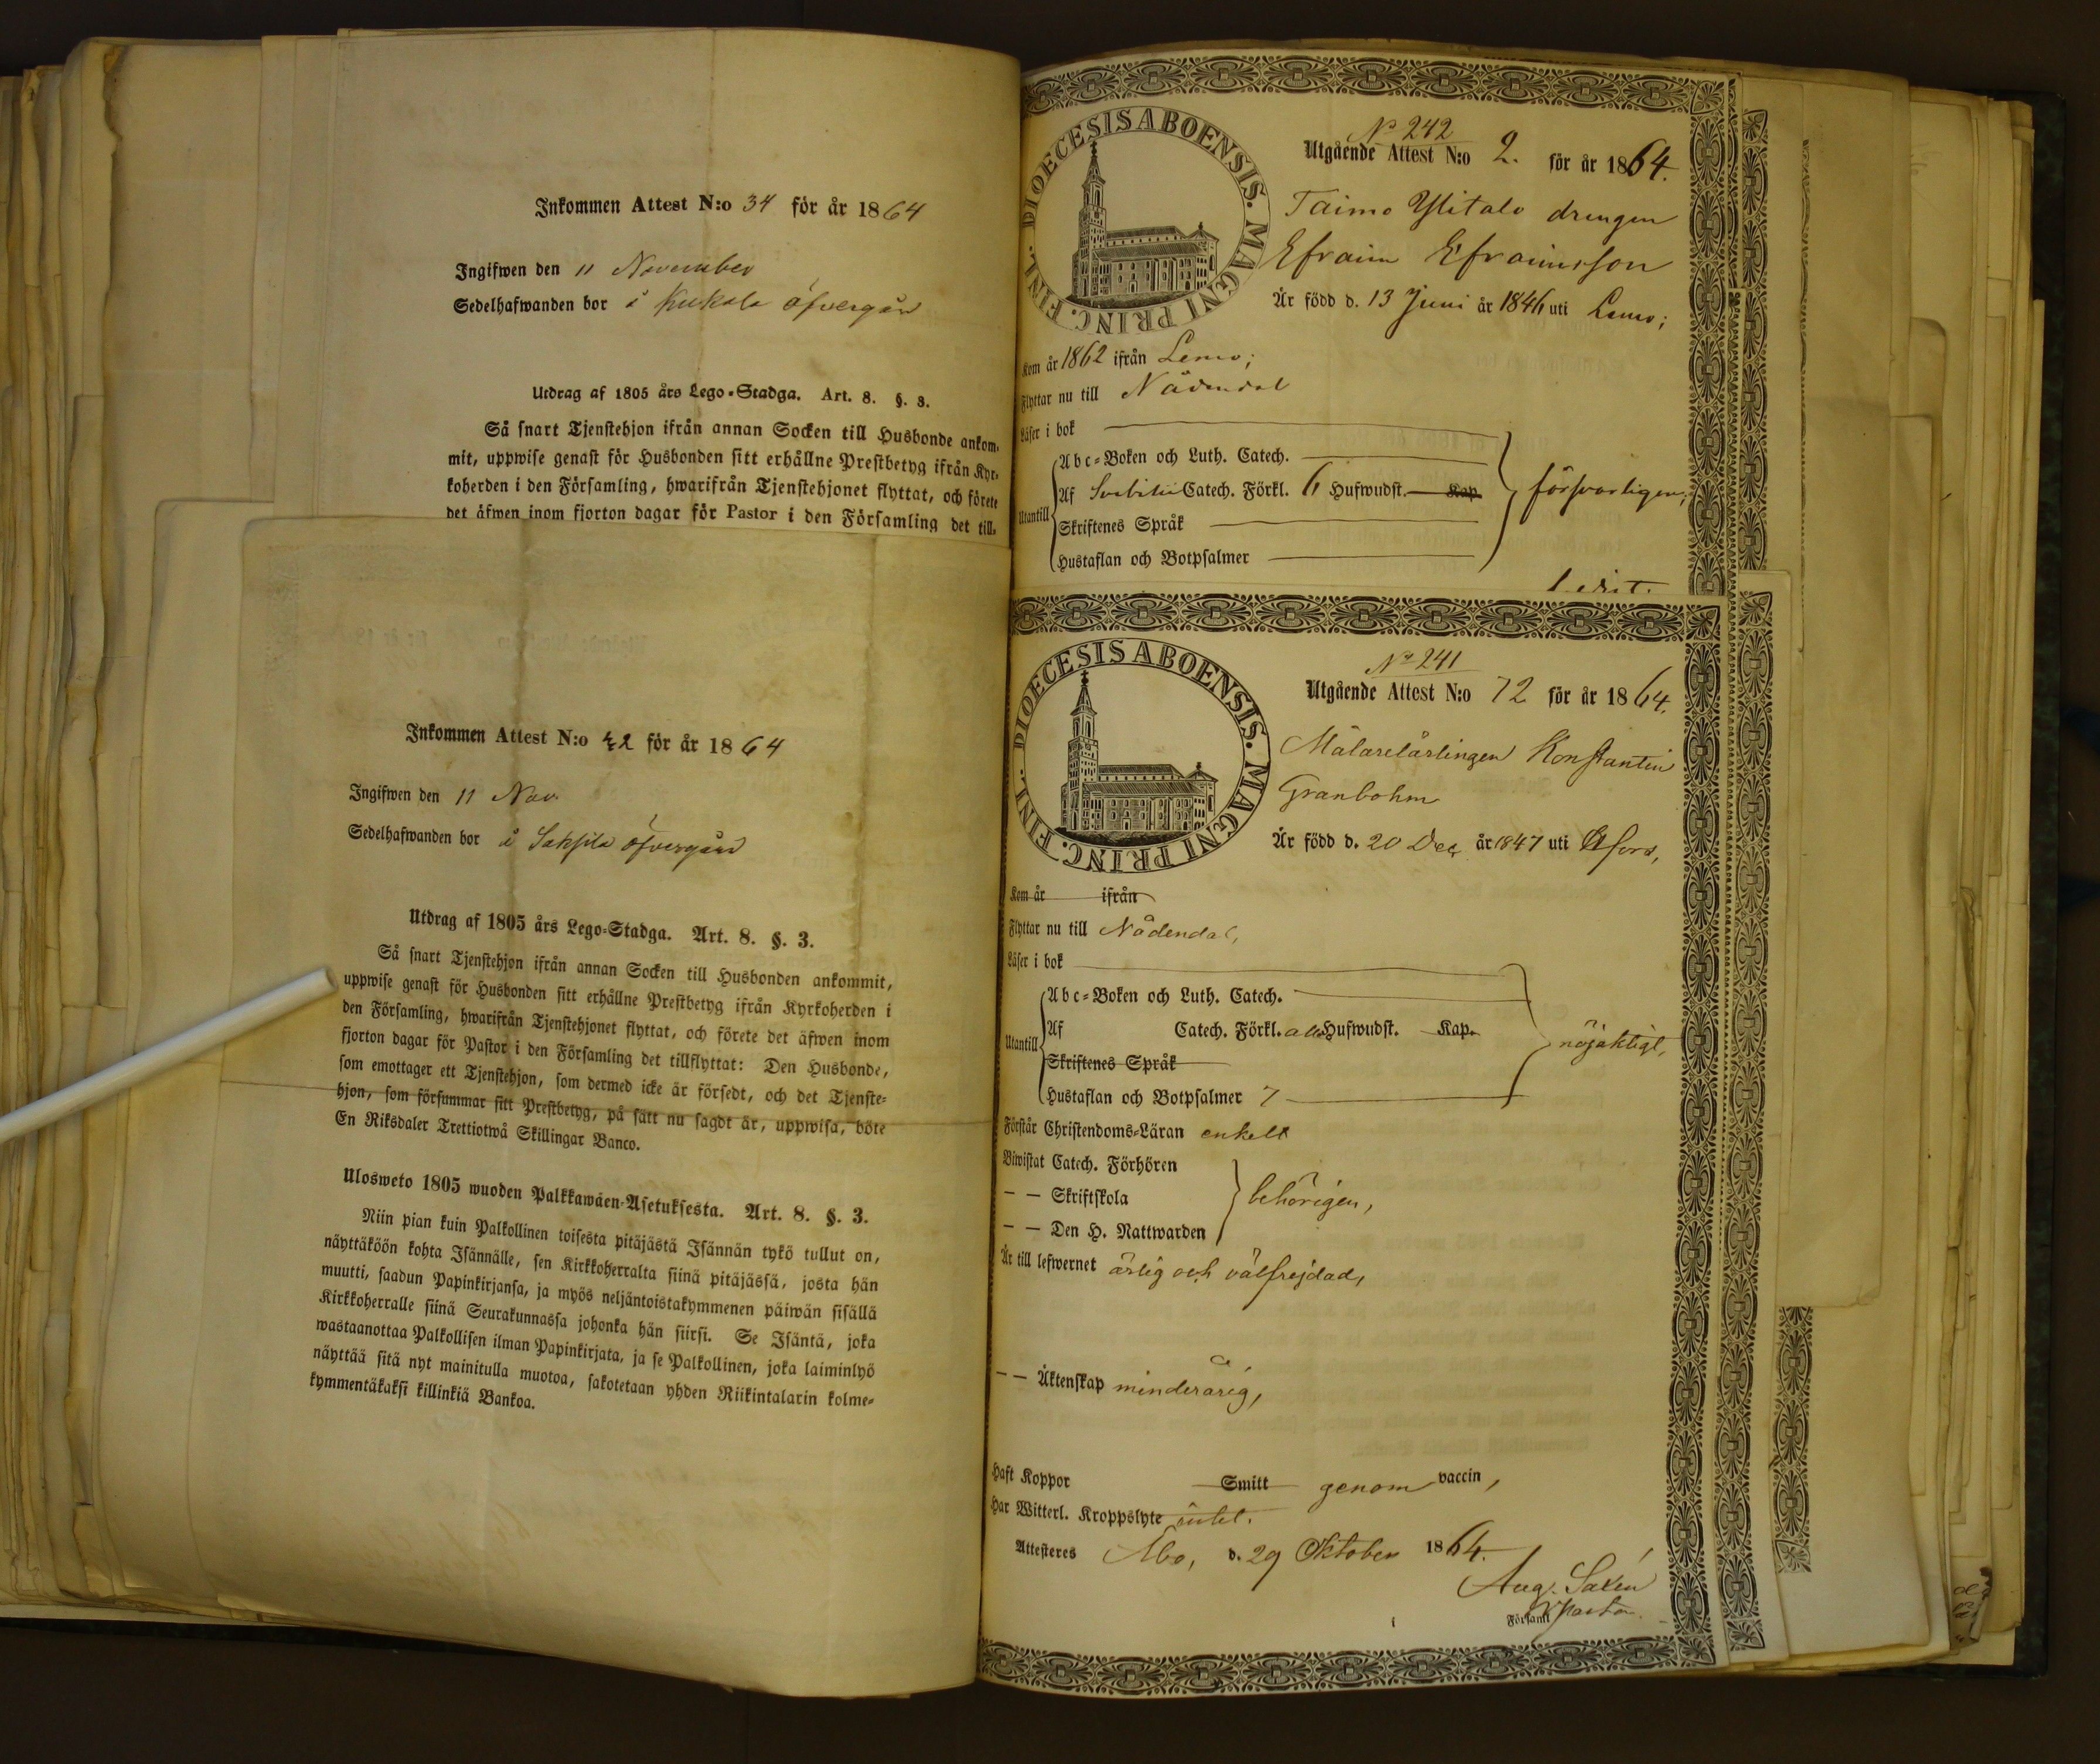 Inkommen Attest N:o 34 för år 1864
Ingifwen den 11 November
Sedelhafwanden bor å Kukola öfvergård
Utdrag af 1805 års Lego-Stadga. Art. 8. §. 3.
Så snart Tjenstehjon ifrån annan Socken till Husbonde ankom-
mit, uppwise genast för Husbonden sitt erhållne Prestbetyg ifrån Kyr-
koherden i den Församling, hwarifrån Tjenstehjonet flyttat, och förete
det äfwen inom fjorton dagar för Pastor i den Församling det till-
Inkommen Attest N:o 42 för år 1864
Ingifwen den 11 Nov.
Sedelhafwanden bor å Saksila öfvergård
Utdrag af 1805 års Lego-Stadga. Art. 8. §. 3.
Så snart Tjenstehjon ifrån annan Socken till Husbonden ankommit,
uppwise genast för Husbonden sitt erhållne Prestbetyg ifrån Kyrkoherden i
den Församling, hwarifrån Tjenstehjonet flyttat, och förete det äfwen inom
fjorton dagar för Pastor i den Församling det tillflyttat: Den Husbonde,
som emottager ett Tjenstehjon, som dermed icke är försedt, och det Tjenste-
hjon, som försummar sitt Prestbetyg, på sätt nu sagdt är, uppwisa, böte
En Riksdaler Trettiotwå Skillingar Banco.
Ulosweto 1805 wuoden Palkkawäen-Asetuksesta. Art. 8. §. 3.
Niin pian kuin Palkollinen toisesta pitäjästä Isännän tykö tullut on,
näyttäköön kohta Isännälle, sen Kirkkoherralta siinä pitäjässä, josta hän
muutti, saadun Papinkirjansa, ja myös neljäntoistakymmenen päiwän sisällä
Kirkkoherralle siinä Seurakunnassa johonka hän siirsi. Se Isäntä, joka
wastaanottaa Palkollisen ilman Papinkirjata, ja se Palkollinen, joka laiminlyö
näyttää sitä nyt mainitulla muotoa, sakotetaan yhden Riikintalarin kolme-
kymmentäkaksi killinkiä Bankoa.
DIOECESIS ABOENSIS. MAGNI PRINC. FINL.
No 242
Utgående Attest N:o 2. för år 1864.
Taimo Ylitalo drengen
Efraim Efraimsson
Är född d. 13 Juni år 1846 uti Lemo;
Kom år 1862 ifrån Lemo;
Flyttar nu till Nådendal
Läser i bok
Abc-Boken och Luth. Catech.
Utantill Af Svebilii Catech. Förkl. 6 Hufwudst. Kap. försvarligen;
Skriftenes Språk
Hustaflan och Botpsalmer
DIOECESIS ABOENSIS. MAGNI PRINC. FINL.
No 241
Utgående Attest N:o 72 för år 1864.
Målarelärlingen Konstantin
Granbohm
Är född d. 20 Dec. år 1847 uti
Kom år ifrån
Flyttar nu till Nådendal,
Läser i bok
Abc-Boken och Luth. Catech.
Utantill Af Catech. Förkl. alla Hufwudst. Kap. nöjaktigt,
Skriftenes Språk
Hustaflan och Botpsalmer 7
Förstår Christendoms-Läran enkelt
Biwistat Catech. Förhören
— — Skriftskola behörigen,
— — Den H. Nattwarden
Är till lefwernet ärlig och välfrejdad,
— — Äktenskap minderårig,
Haft Koppor Smitt genom vaccin,
Har Witterl. Kroppslyte intet.
Attesteres Åbo, d. 29 Oktober 1864.
Aug. Saxén
Församl. Vpastor.